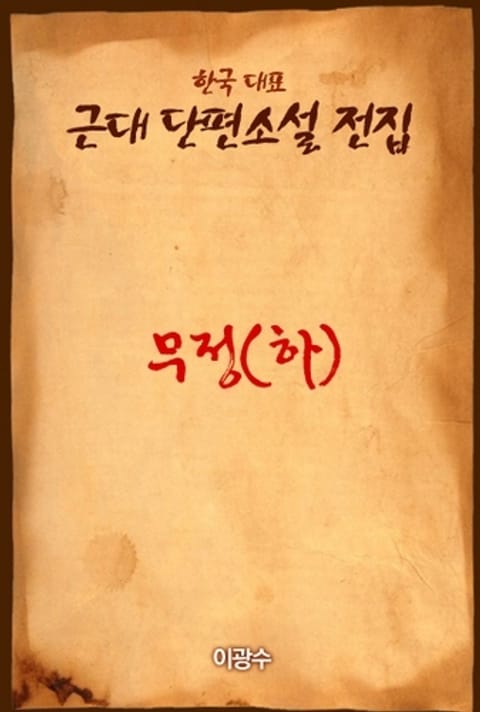 한국 대표
근대 단편소설 전집
무정(하)
이광수